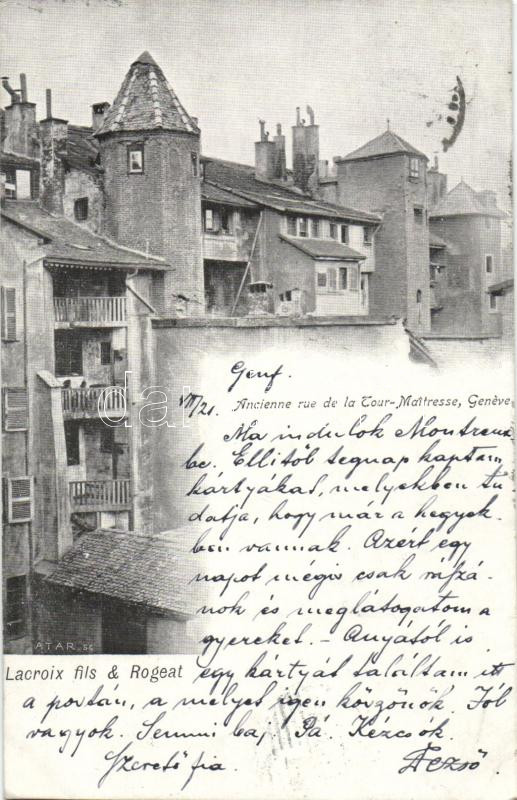 Genf.
VII/21.
Ancienne rue de la Tour-Maîtresse, Genève
Ma indulok Montreux
be. Ellitől tegnap kaptam
kártyákat, melyekben tu
datja, hogy már a hegyek-
ben vannak. Azért egy
napot mégis csak rájzá-
nok és meglátogatom a
gyereket. - Anyától is
ATAR. 56
Lacroix fils & Rogeat
egy kártyát találtam itt
a portán, a melyet igen köszönök. Jól
vagyok. Semmi baj. Pá. Kézcsók.
Szerető fia
Dezső